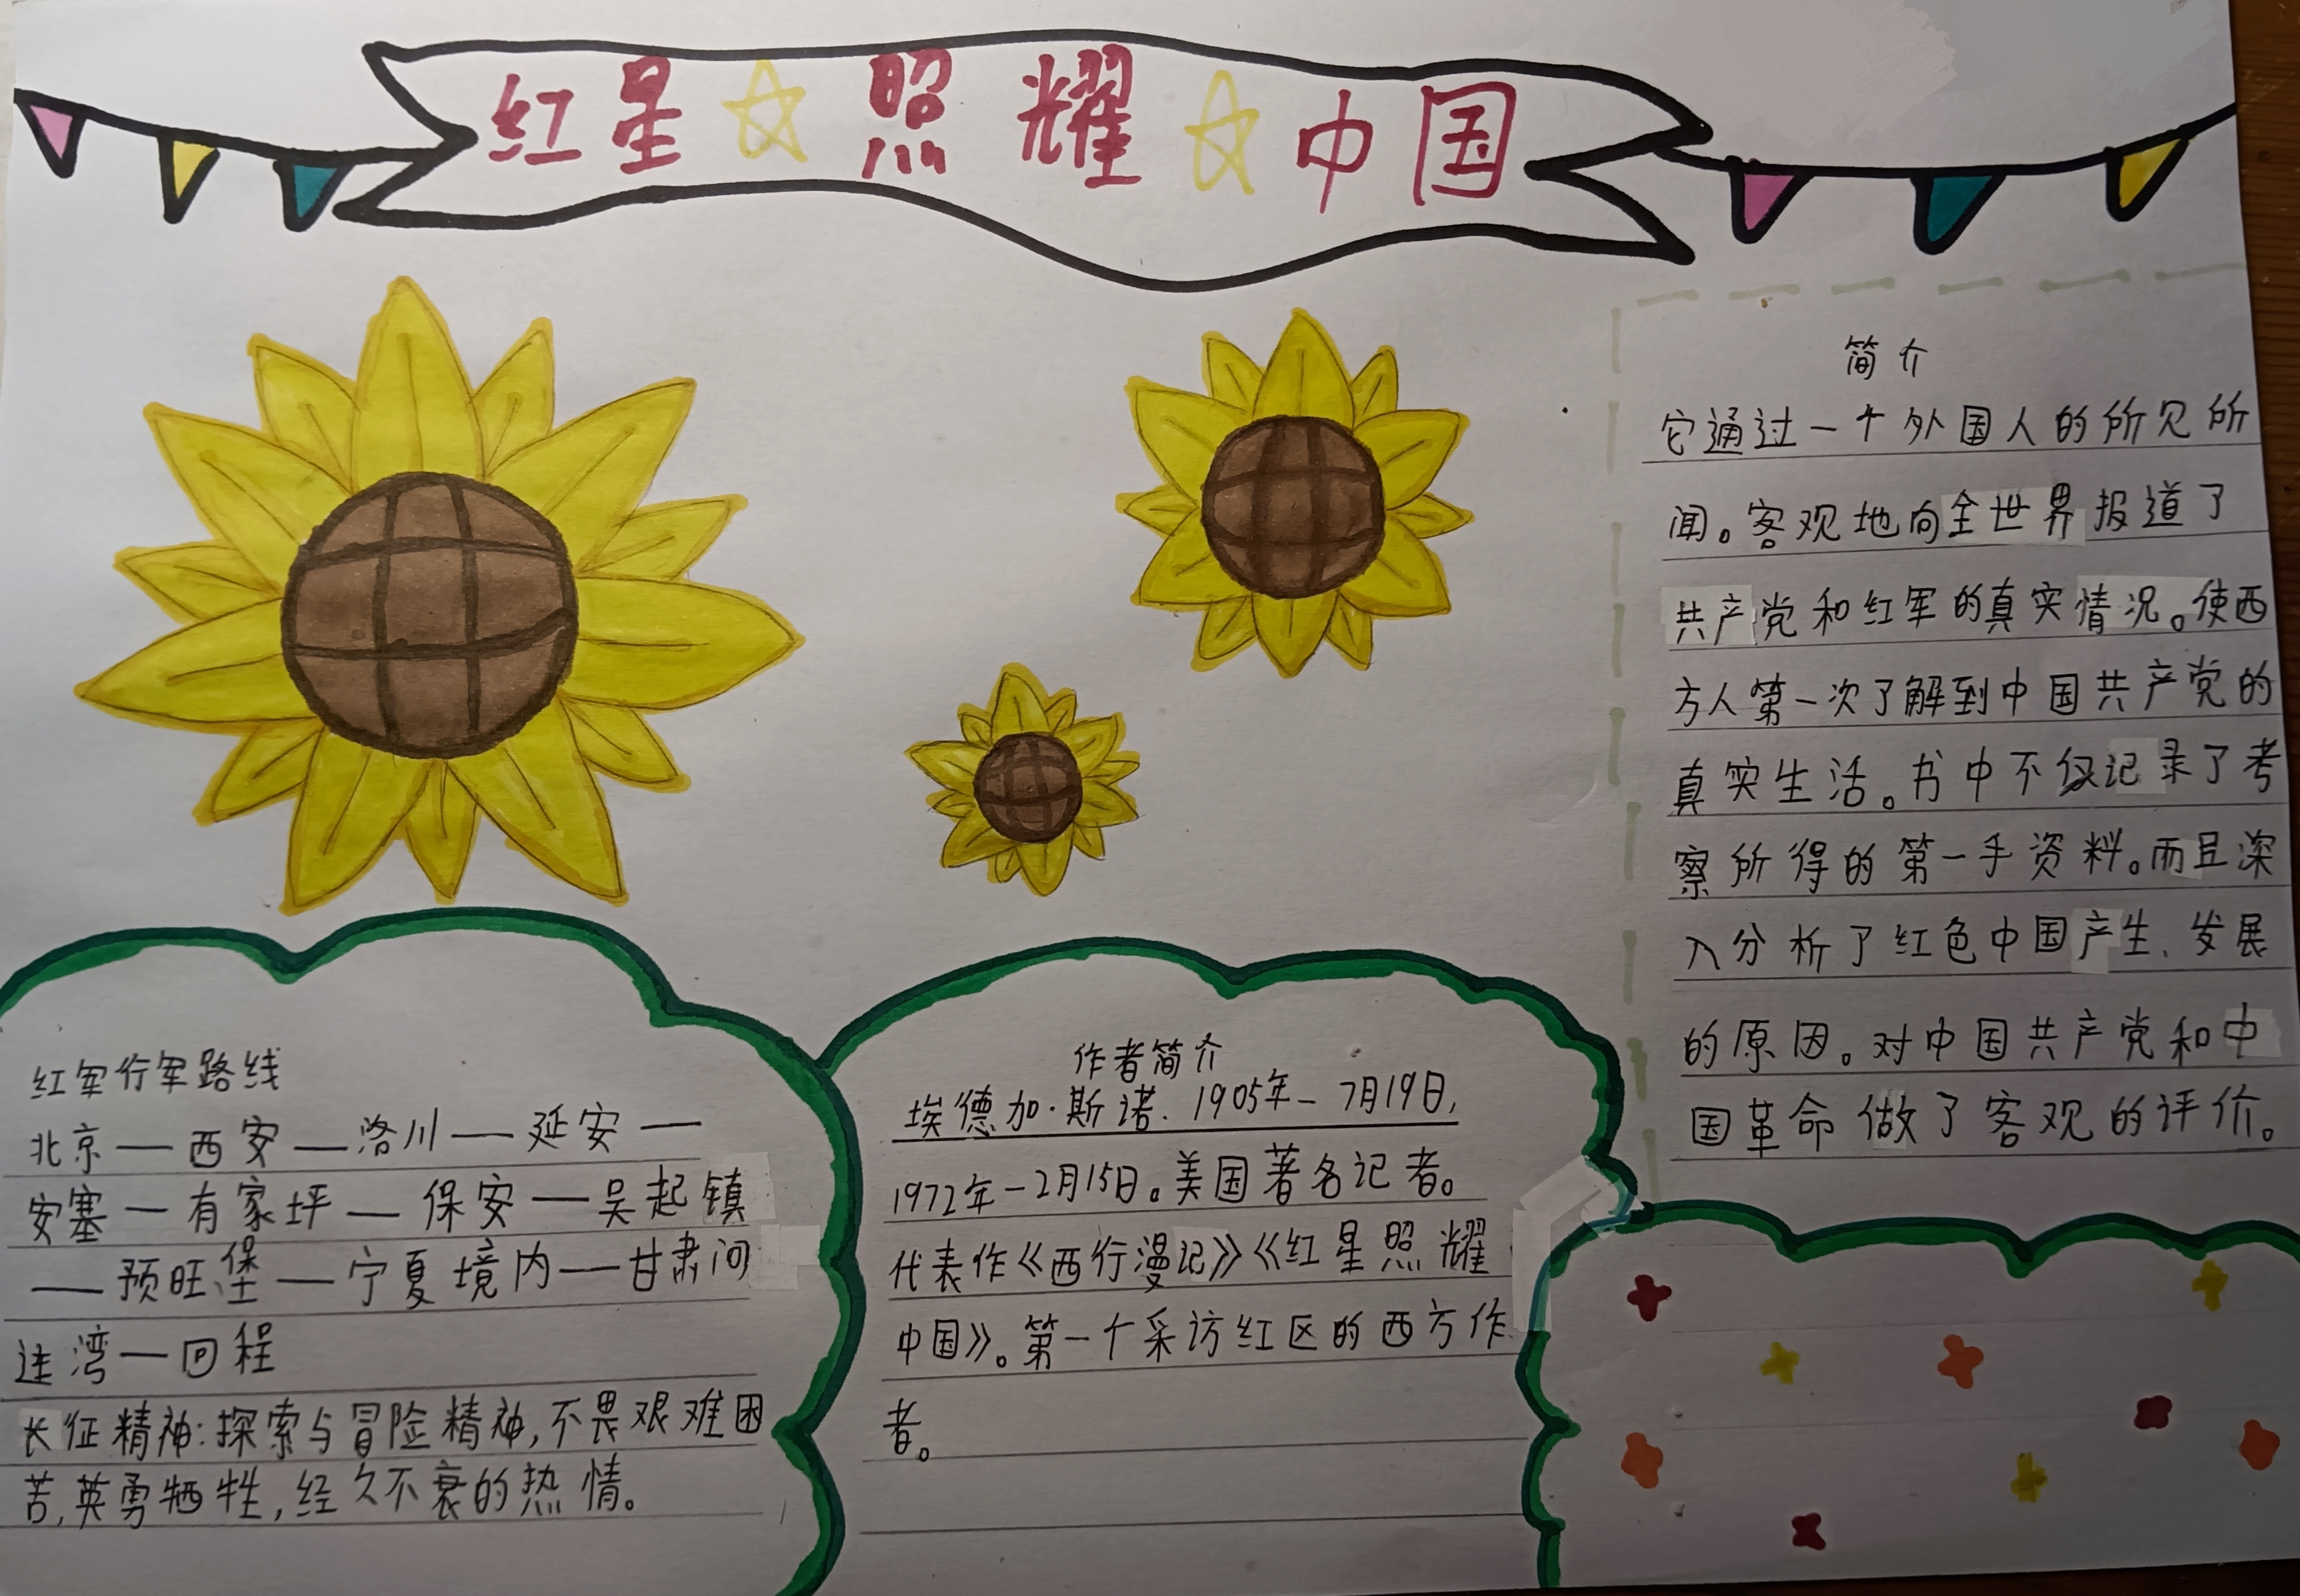 红星照耀中国
简介
它通过一个外国人的所见所
闻。客观地向全世界报道了
共产党和红军的真实情况。使西
方人第一次了解到中国共产党的
真实生活。书中不仅记录了考
察所得的第一手资料。而且深
入分析了红色中国产生、发展
的原因。对中国共产党和中
国革命做了客观的评价。
红军行军路线
北京——西安——洛川——延安——
安塞—有家坪—保安——吴起镇
——预旺堡——宁夏境内——甘肃河
连湾—回程
长征精神:探索与冒险精神,不畏艰难困
苦,英勇牺牲,经久不衰的热情。
作者简介
埃德加·斯诺.1905年-7月19日,
1972年-2月15日。美国著名记者。
代表作《西行漫记》《红星照耀
中国》。第一个采访红区的西方作
者。